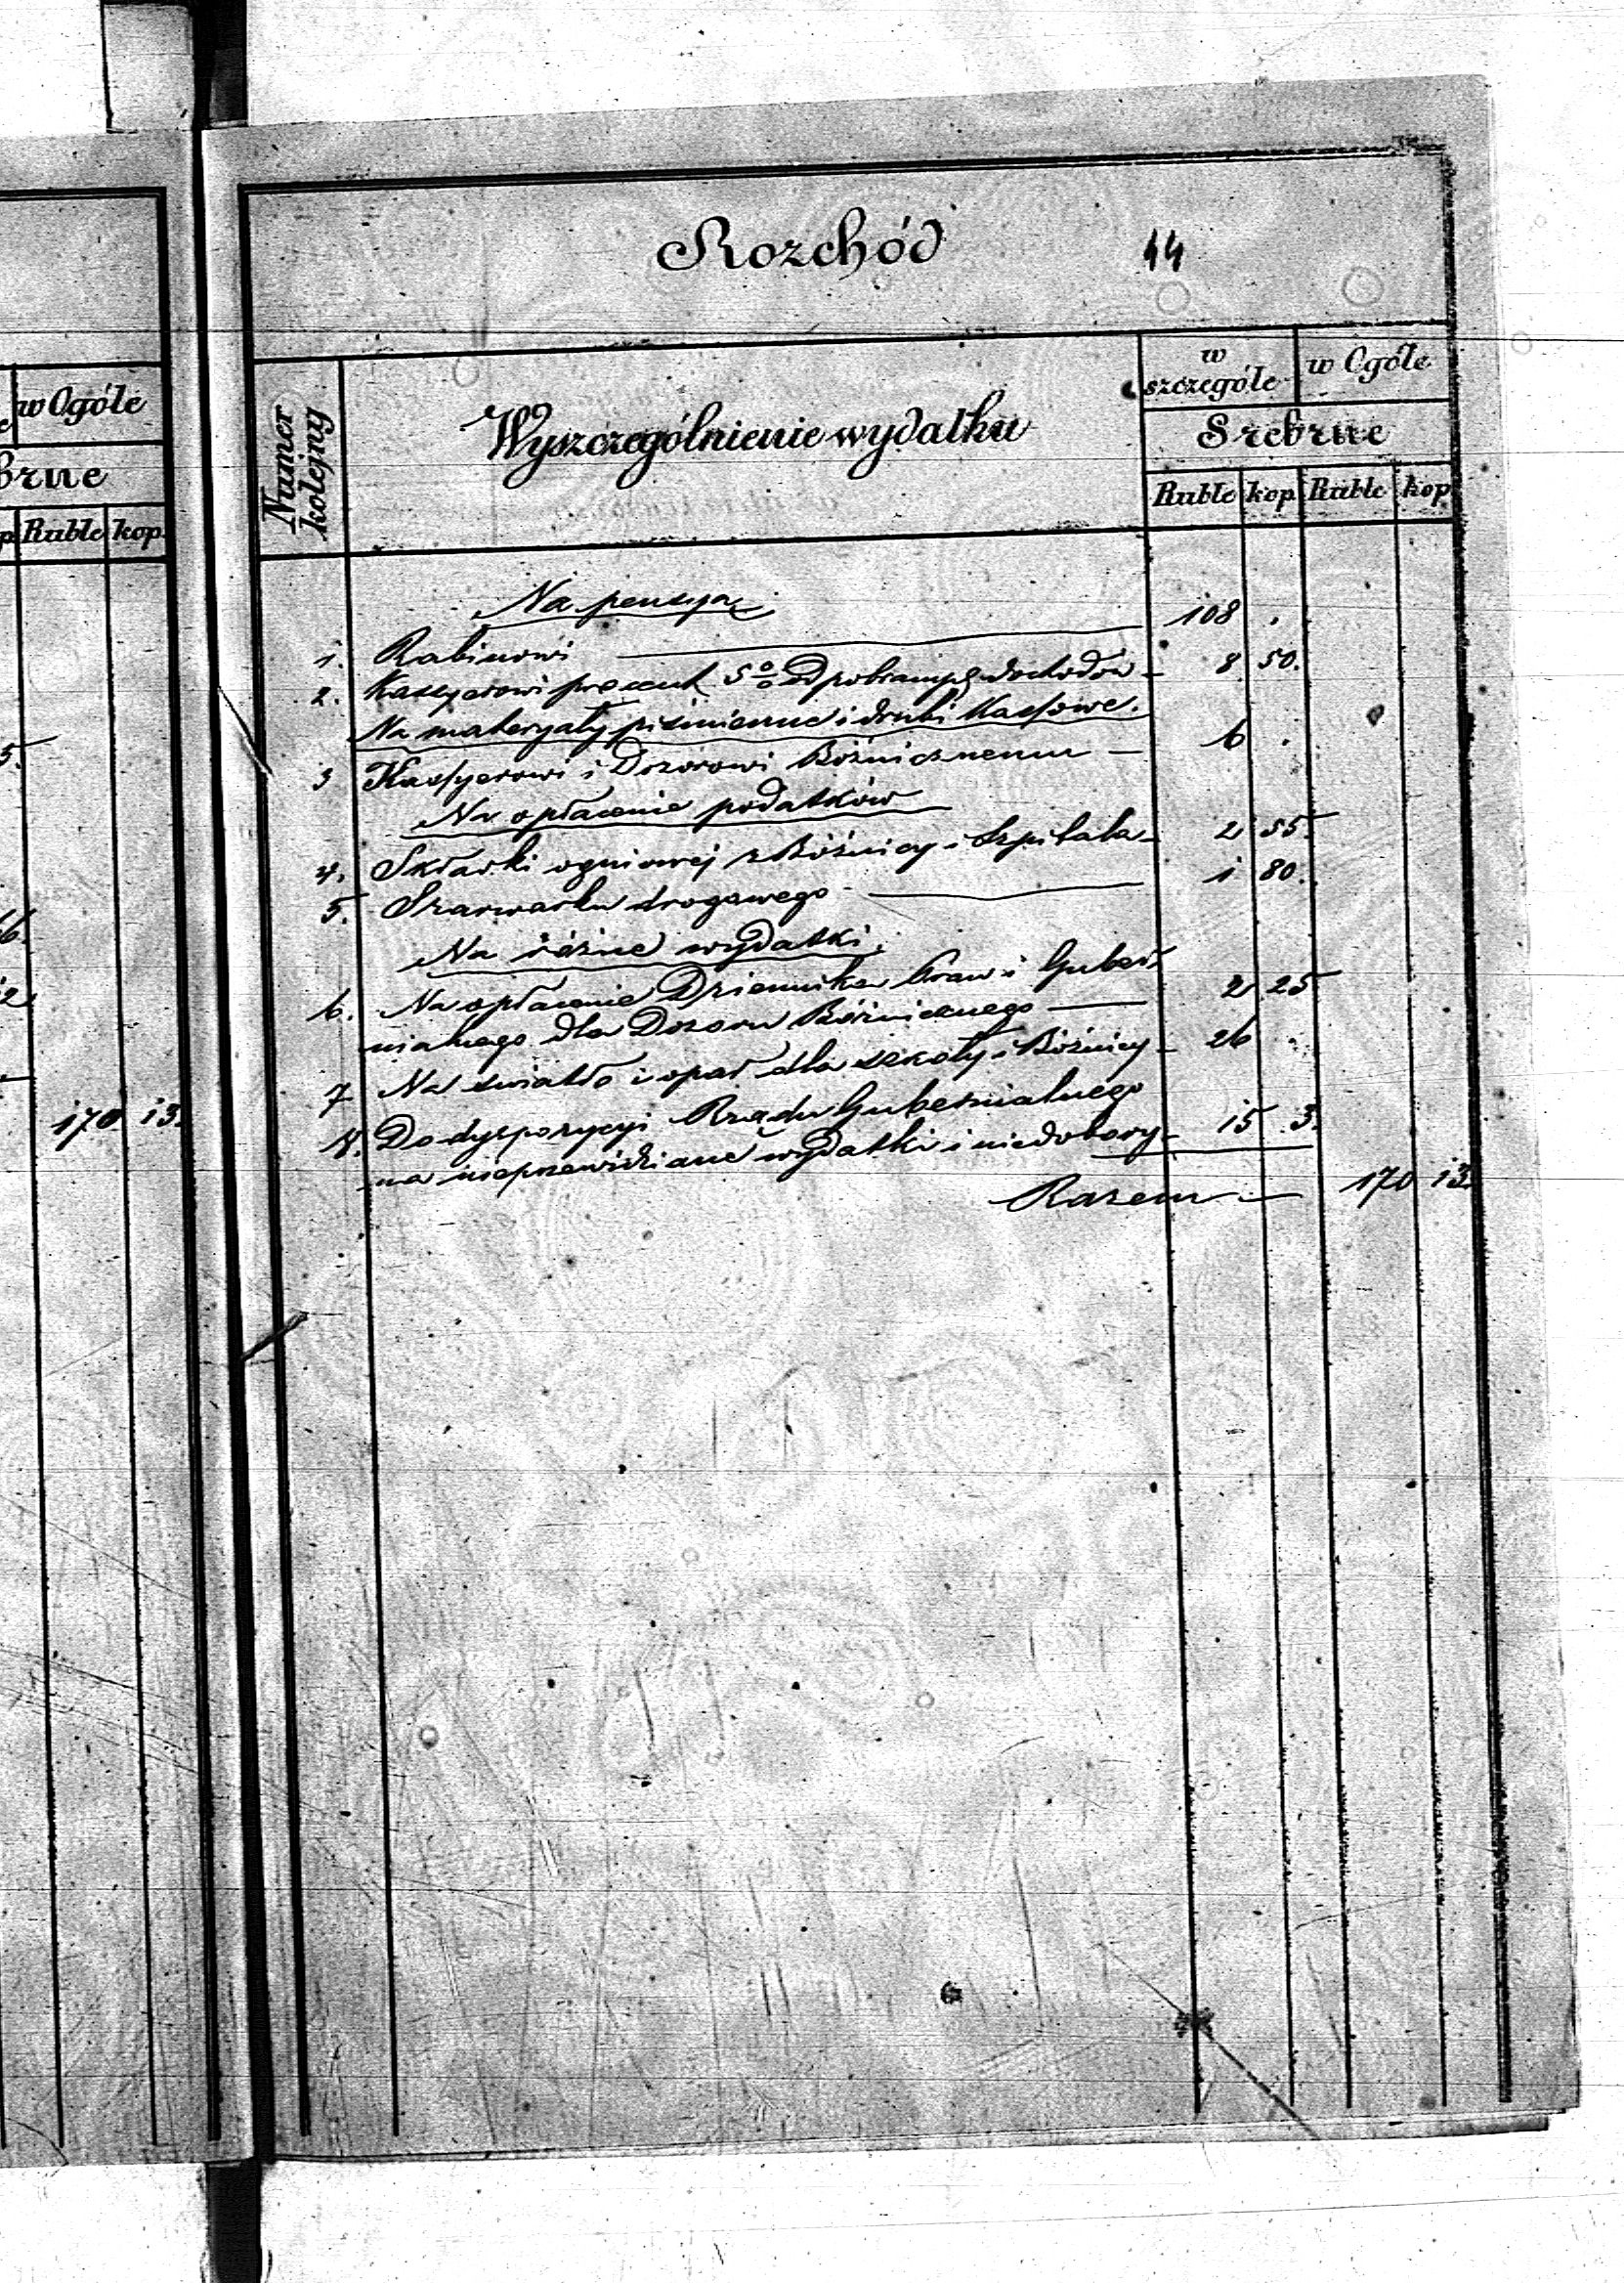 w Ogóle
Ruble kop.
170 13.
Rozchód 44
Numer kolejny
Wyszczególnienie wydatku
w szczególe
w Ogóle
Srebrne
Ruble kop Ruble kop
Na pensya
1. Rabinowi 108 .
2. Kassyerowi procent 5% od pobranych dochodów 8 50.
Na materyały piśmienne i druki Kassowe.
3 Kassyerowi i Dozorowi Bóżnicznemu — 6 .
Na opłacenie podatków
4. Składki ogniowej z Bóżnicy i Szpitala 2 55.
5. Szarwarku drogowego 1 80.
Na różne wydatki.
6. Na opłacenie Dziennika Praw i Guber
nialnego dla Dozoru Bóżnicznego — 2 25
7 Na światło i opał dla szkoły i Bóżnicy 26 .
8. Do dyspozycyi Rządu Gubernialnego
na nieprzewidziane wydatki i niedobory 15 3.
Razem — 170 13.